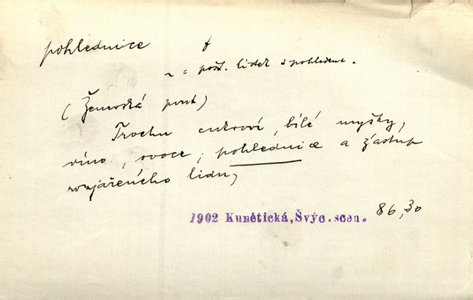 pohlednice f
~ = pošt. lístek s pohledem.
(Ženevská pout)
Trochu cukroví, bílé myšky,
víno, ovoce, pohlednice a zástup
rozjařeného lidu,
1902 Kunětická, Švýc. scen. 86,30